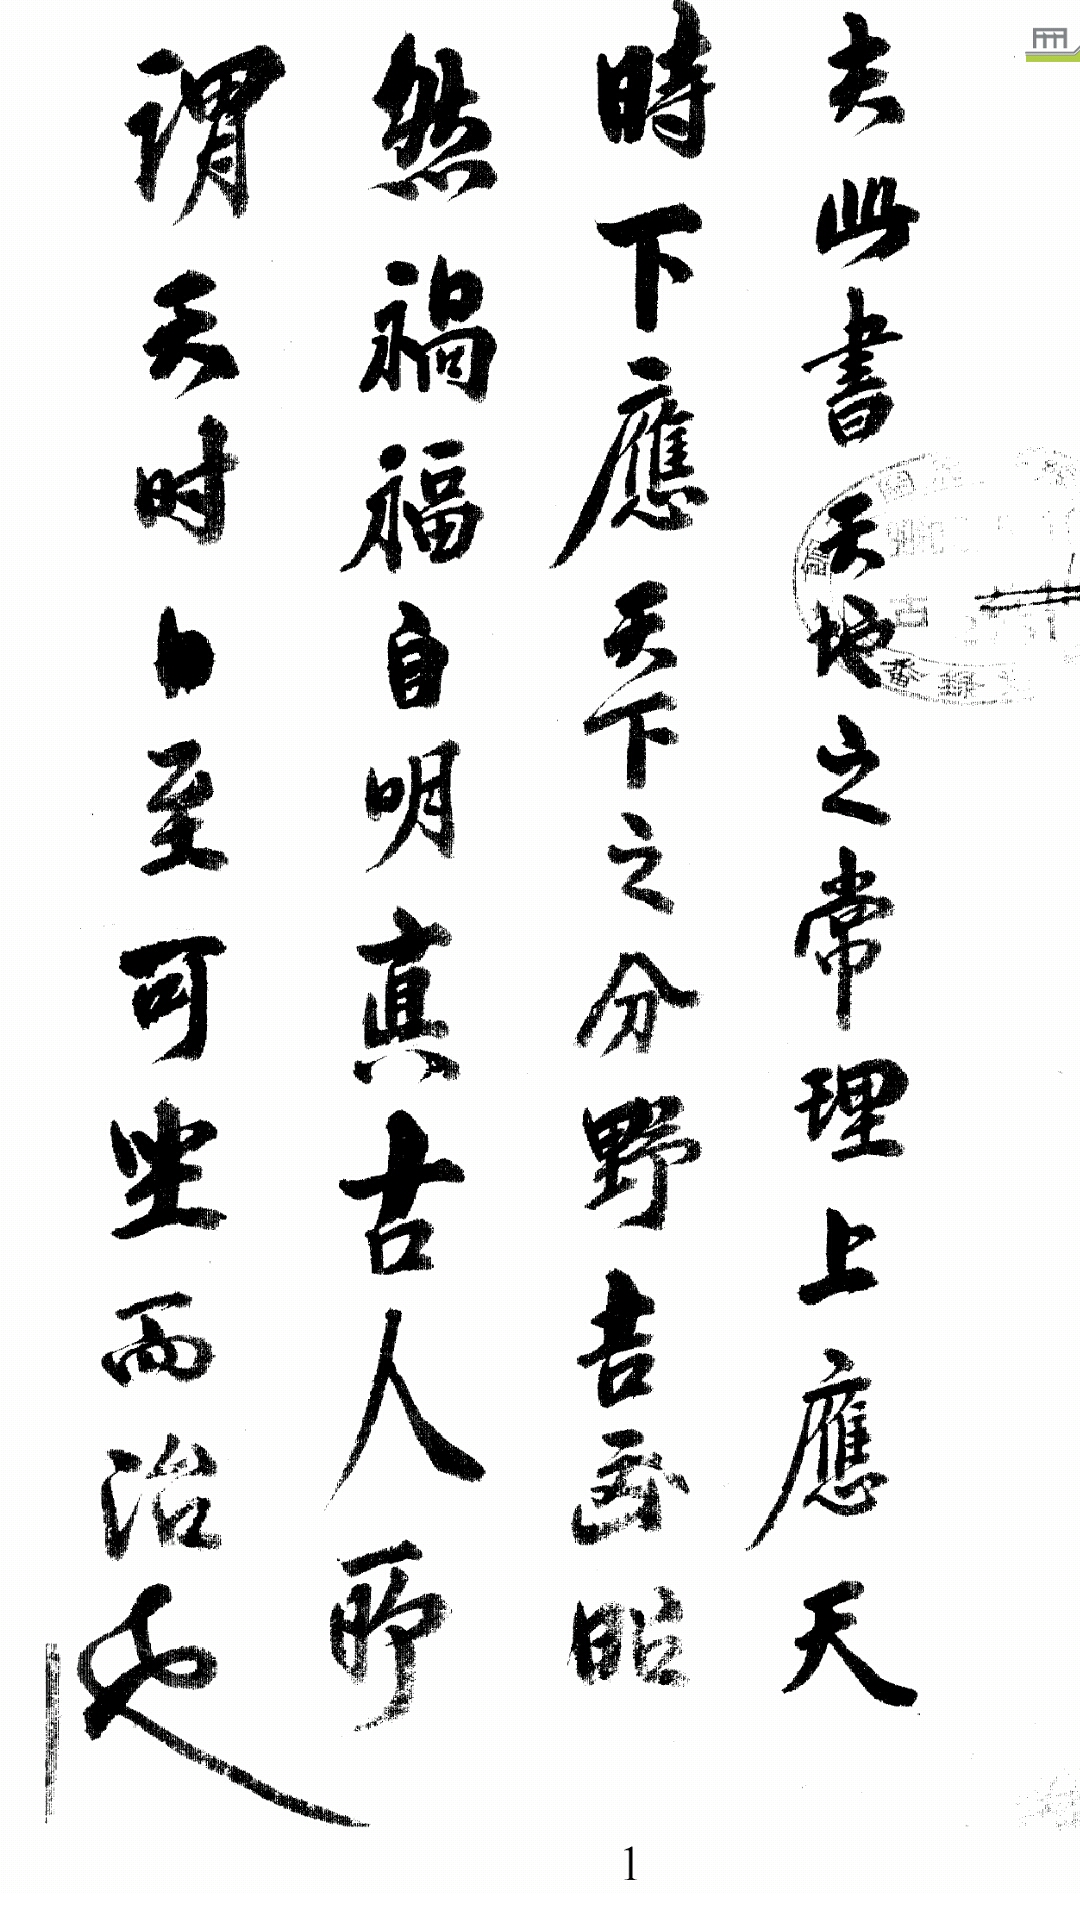 夫此書天地之常理上應天
時下應天下之分野吉凶昭
然禍福自明真古人所
謂天时日至可坐而治也
1